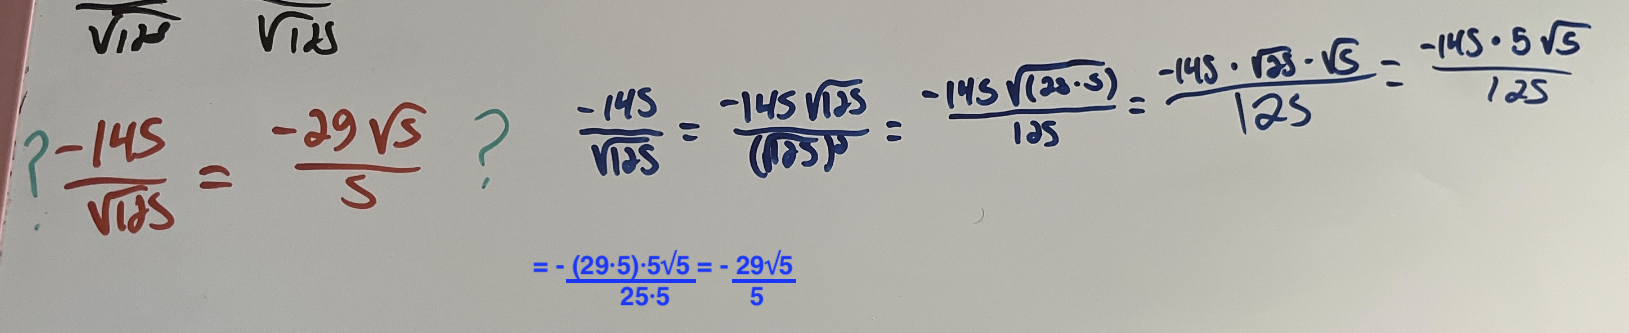 √125 √125
? -145/√125 = -29√5/5 ?
-145/√125 = -145√125/(√125)² = -145√(25·5)/125 = -145·√25·√5/125 = -145·5√5/125
= - (29·5)·5√5/25·5 = - 29√5/5